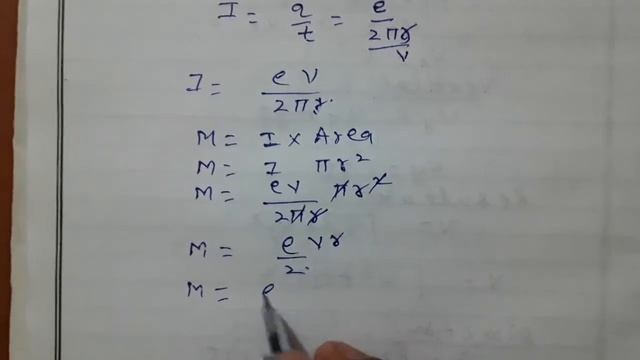 I = q/t = e/(2πr/v)
I = ev/2πr
M = I x Area
M = I πr²
M = ev/2πr πr²
M = evr/2
M = e